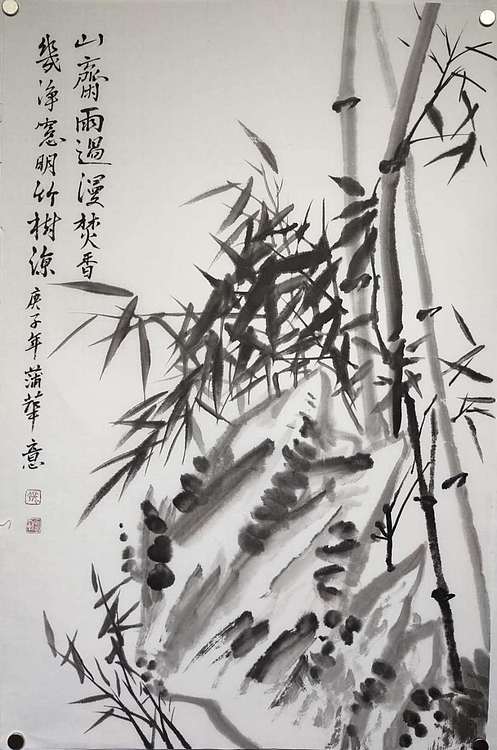 山齋雨過漫焚香
幾淨窓明竹樹涼
庚子年蒲華意